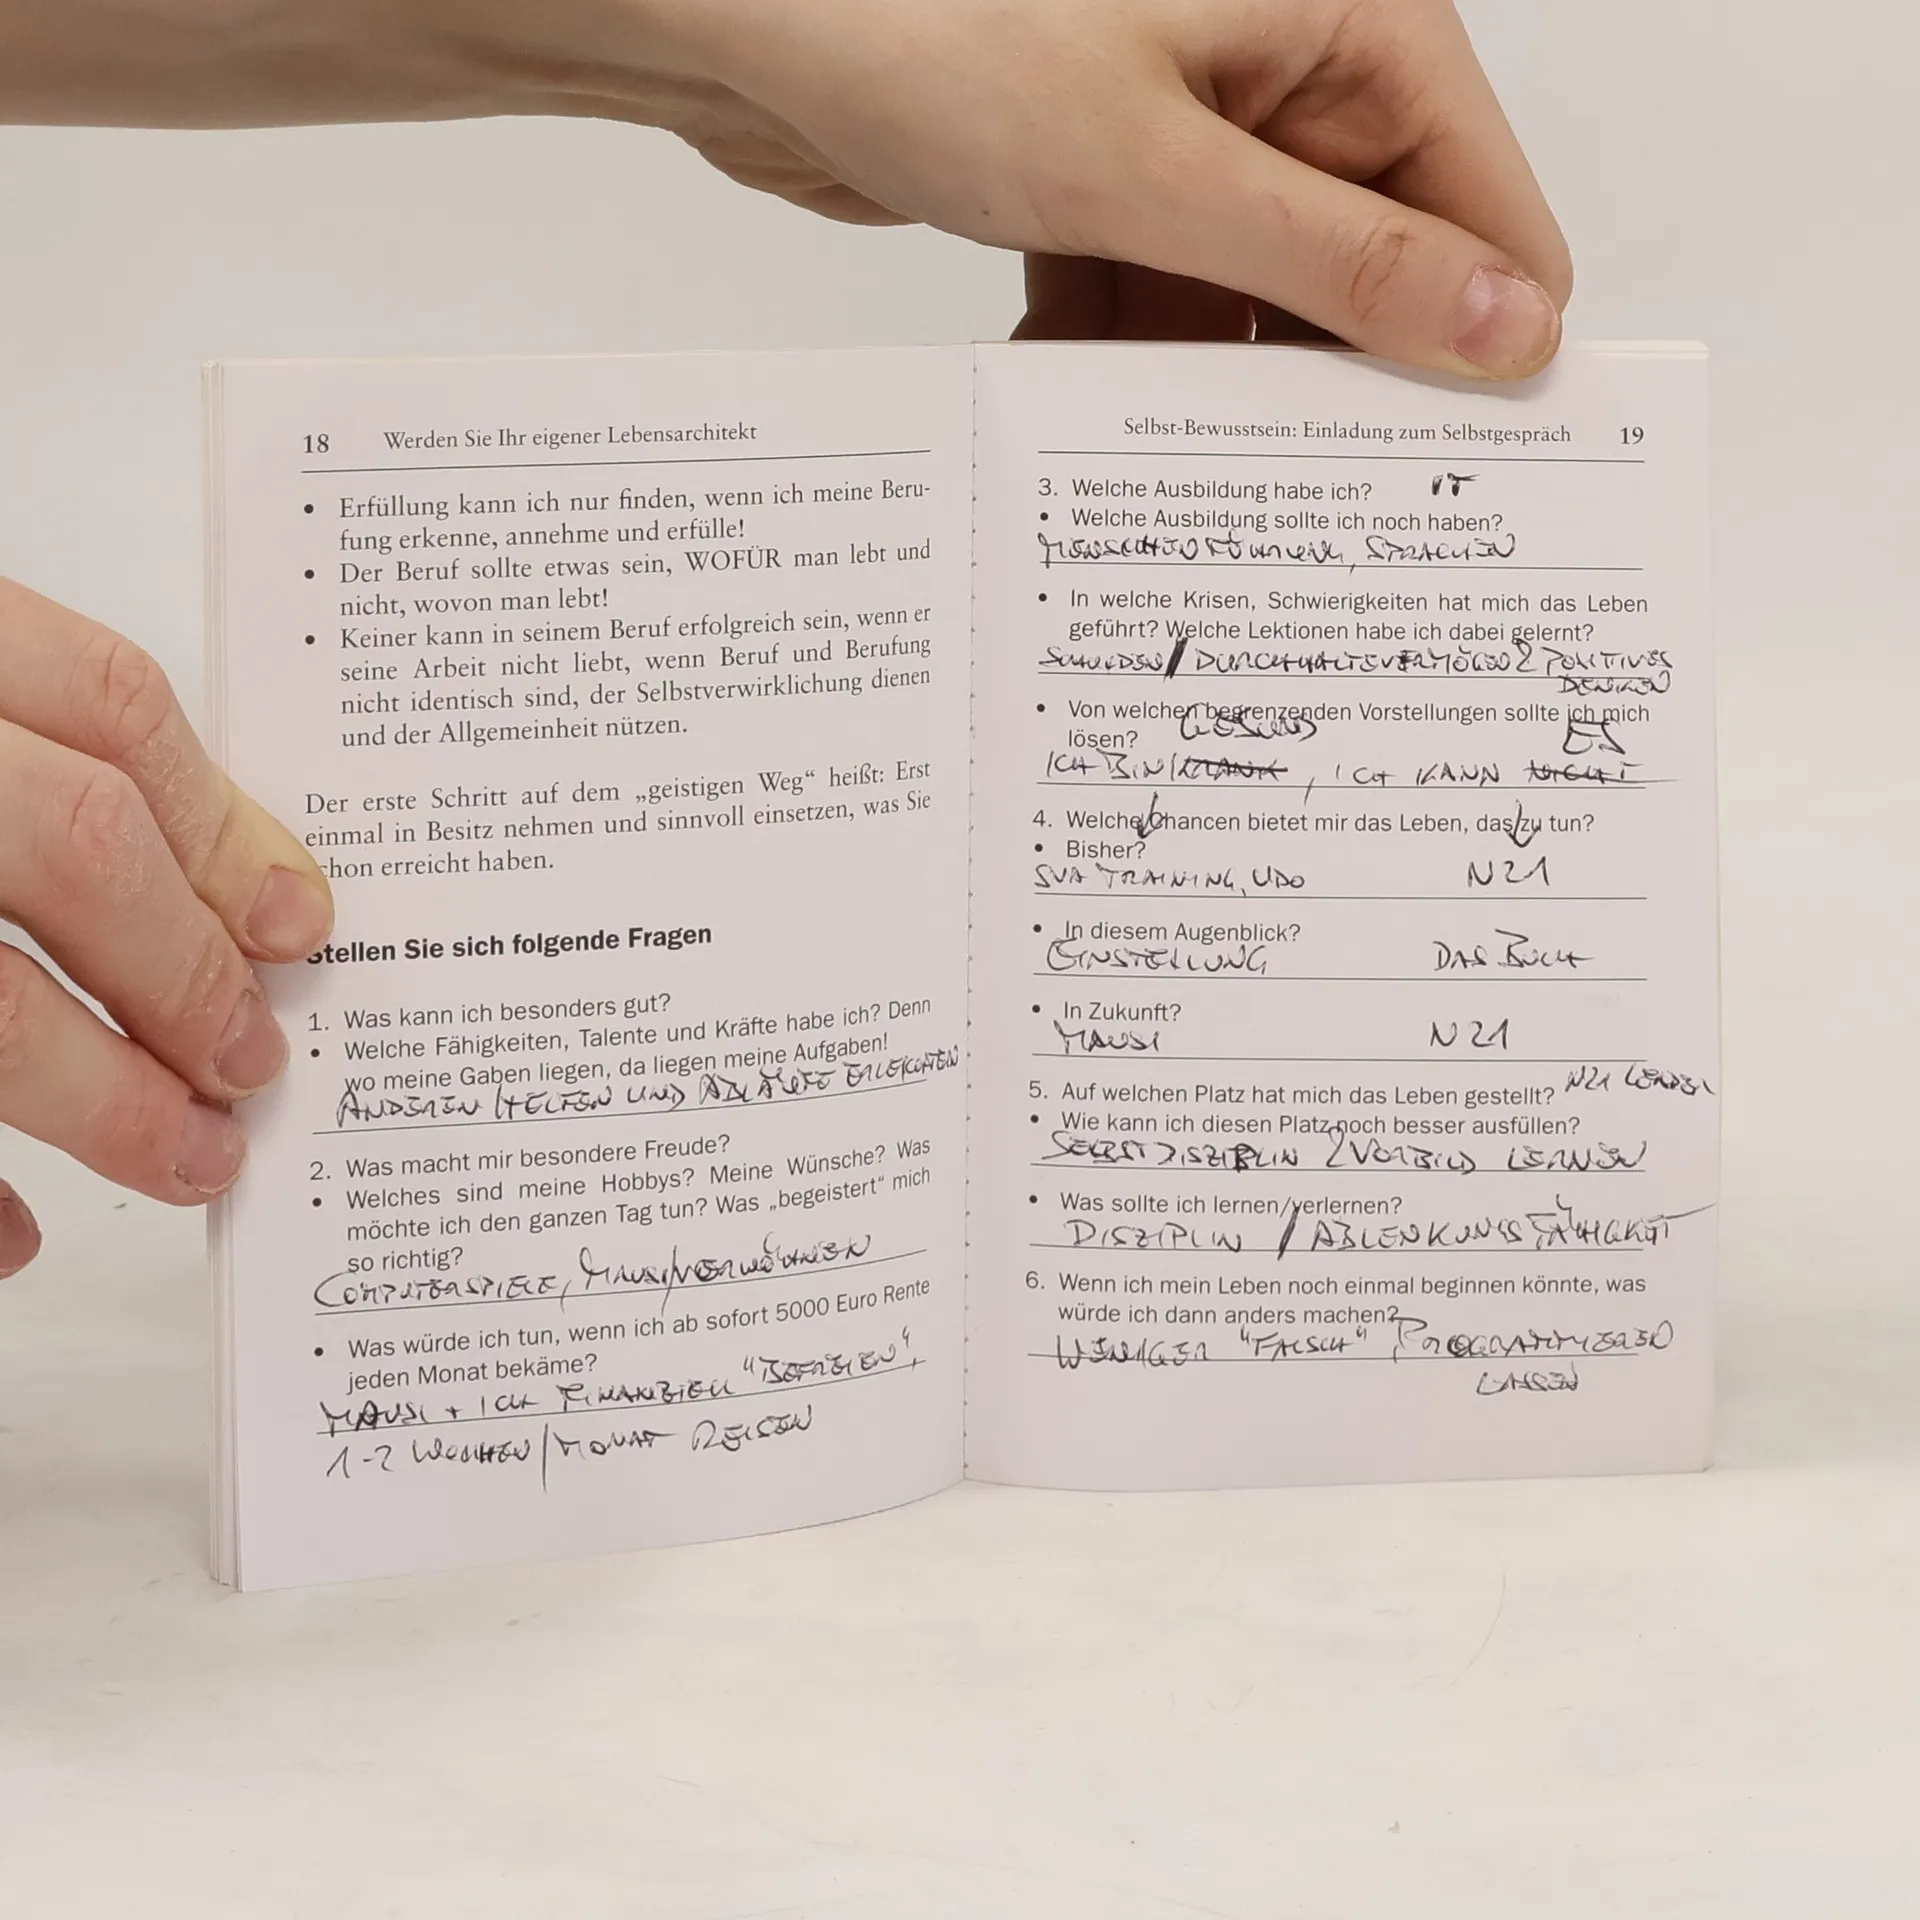 18 Werden Sie Ihr eigener Lebensarchitekt
• Erfüllung kann ich nur finden, wenn ich meine Beru-
fung erkenne, annehme und erfülle!
• Der Beruf sollte etwas sein, WOFÜR man lebt und
nicht, wovon man lebt!
• Keiner kann in seinem Beruf erfolgreich sein, wenn er
seine Arbeit nicht liebt, wenn Beruf und Berufung
nicht identisch sind, der Selbstverwirklichung dienen
und der Allgemeinheit nützen.
Der erste Schritt auf dem „geistigen Weg“ heißt: Erst
einmal in Besitz nehmen und sinnvoll einsetzen, was Sie
chon erreicht haben.
Stellen Sie sich folgende Fragen
1. Was kann ich besonders gut?
• Welche Fähigkeiten, Talente und Kräfte habe ich? Denn
wo meine Gaben liegen, da liegen meine Aufgaben!
ANDEREN HELFEN UND ABLÄUFE ERLEICHTERN
2. Was macht mir besondere Freude?
• Welches sind meine Hobbys? Meine Wünsche? Was
möchte ich den ganzen Tag tun? Was „begeistert“ mich
so richtig?
COMPUTERSPIELE, MAUSI VERWÖHNEN
• Was würde ich tun, wenn ich ab sofort 5000 Euro Rente
jeden Monat bekäme?
MAUSI + ICH FINANZIELL "BEFREIEN",
1-2 WOCHEN/MONAT REISEN
Selbst-Bewusstsein: Einladung zum Selbstgespräch 19
3. Welche Ausbildung habe ich? IT
• Welche Ausbildung sollte ich noch haben?
MENSCHENFÜHRUNG, SPRACHEN
• In welche Krisen, Schwierigkeiten hat mich das Leben
geführt? Welche Lektionen habe ich dabei gelernt?
SCHULDEN / DURCHHALTEVERMÖGEN & POSITIVES
DENKEN
• Von welchen begrenzenden Vorstellungen sollte ich mich
lösen? GESUND ES
ICH BIN KRANK, ICH KANN NICHT
4. Welche Chancen bietet mir das Leben, das zu tun?
• Bisher?
SVA TRAINING, UDO N21
• In diesem Augenblick?
EINSTELLUNG DAS BUCH
• In Zukunft?
MAUSI N21
5. Auf welchen Platz hat mich das Leben gestellt? N21
• Wie kann ich diesen Platz noch besser ausfüllen?
SELBSTDISZIPLIN & VORBILD LERNEN
• Was sollte ich lernen/verlernen?
DISZIPLIN / ABLENKUNGSFÄHIGKEIT
6. Wenn ich mein Leben noch einmal beginnen könnte, was
würde ich dann anders machen?
WENIGER "FALSCH" PROGRAMMIEREN
LASSEN